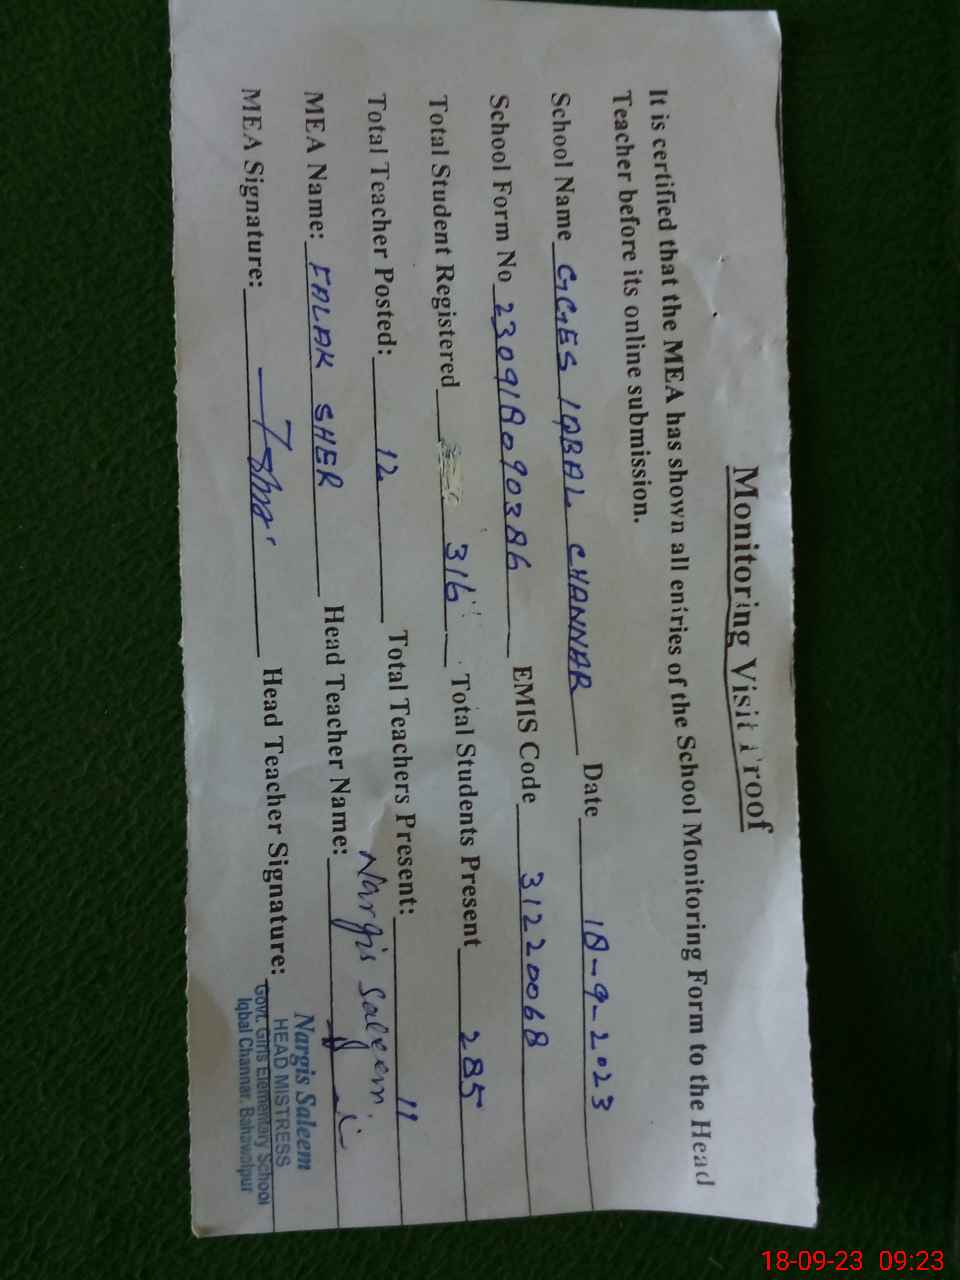 Monitoring Visit Proof
It is certified that the MEA has shown all entries of the School Monitoring Form to the Head
Teacher before its online submission.
School Name GGES IQBAL CHANNAR Date 18-9-2023
School Form No 230918090386 EMIS Code 31220068
Total Student Registered 316 Total Students Present 285
Total Teacher Posted: 12 Total Teachers Present: 11
MEA Name: FALAK SHER Head Teacher Name: Nargis Saleem
MEA Signature: Head Teacher Signature:
Nargis Saleem
HEAD MISTRESS
Govt. Girls Elementary School
Iqbal Channar, Bahawalpur
18-09-23 09:23